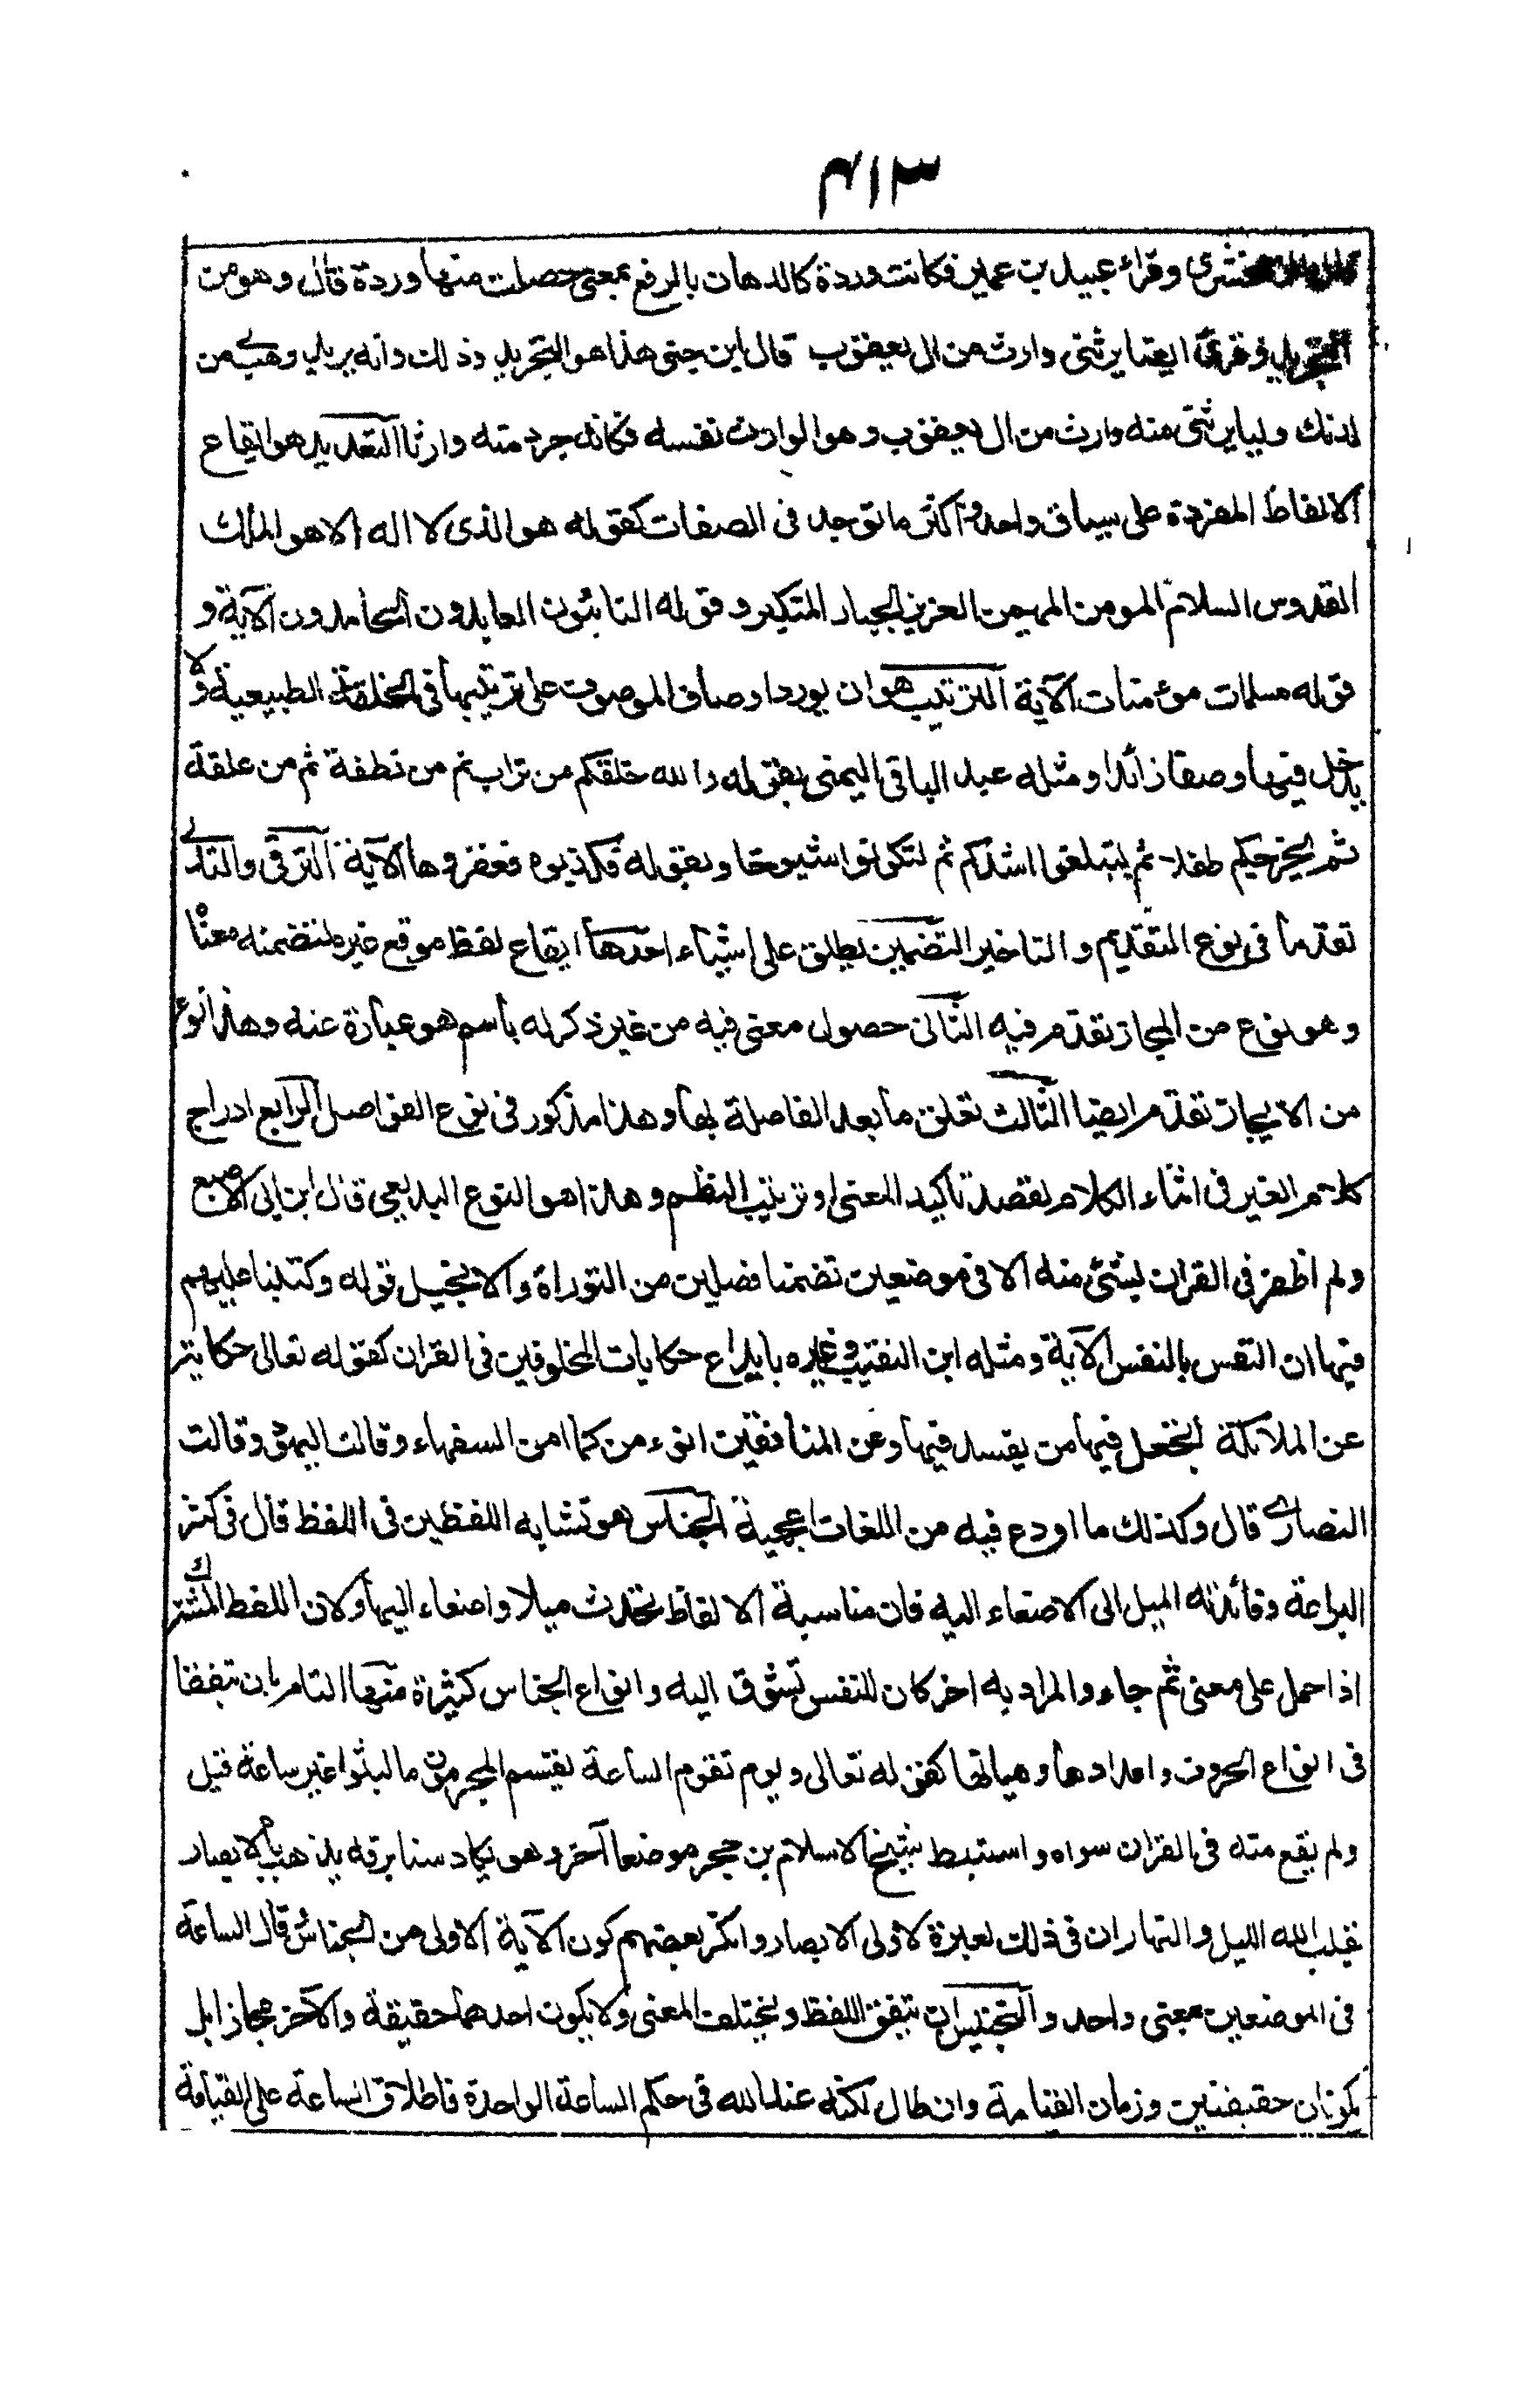 ٤١٣
الزمخشرى وقراء عبيد بن عمير فكانت وردة كالدهان بالرفع بمعنى حصلت منها وردة قال وهو من
التجريد وقرئ ايضا يرثنى وارث من ال يعقوب قال ابن جنى هذا هو التجريد وذلك وانه يريد وهب لى من
لدنك وليا يرثنى منه وارث من ال يعقوب وهو الوارث نفسه فكانه جرد منه وارثا التعديد هو ايقاع
الالفاظ المفردة على سياق واحد واكثر ما توجد فى الصفات كقوله هو الذى لا اله الا هو الملك
القدوس السلام المومن المهيمن العزيز الجبار المتكبر وقوله التائبون العابدون الحامدون الآية و
قوله مسلمات مؤمنات الآية الترتيب هو ان يورد اوصاف الموصوف على ترتيبها فى الخلقة الطبيعية ولا
يدخل فيها وصفا زائدا ومثله عبد الباقى اليمنى بقوله والله خلقكم من تراب ثم من نطفة ثم من علقة
ثم يخرجكم طفلا ثم لتبلغوا اشدكم ثم لتكونوا شيوخا وبقوله فكذبوه فعقروها الآية الترقى والتدلى
تقدما فى نوع التقديم والتاخير التضمين يطلق على اشياء احدها ايقاع لفظ موقع غيره لتضمنه معناه
وهو نوع من المجاز تقدم فيه الثانى حصول معنى فيه من غير ذكر له باسم هو عبارة عنه وهذا نوع
من الايجاز تقدم ايضا الثالث تعلق ما بعد الفاصلة بها وهذا مذكور فى نوع الفواصل الرابع ادراج
كلام الغير فى اثناء الكلام لقصد تاكيد المعنى او ترتيب النظم وهذا هو النوع البديعى قال ابن ابى الاصبع
ولم اظفر فى القران بشئ منه الا فى موضعين تضمنا فصلين من التوراة والانجيل قوله وكتبنا عليهم
فيها ان النفس بالنفس الآية ومثله ابن النقيب وغيره بايداع حكايات المخلوقين فى القران كقوله تعالى حكاية
عن الملآئكة اتجعل فيها من يفسد فيها وعن المنافقين انؤمن كما امن السفهاء وقالت اليهود وقالت
النصارى قال وكذلك ما اودع فيه من اللغات اعجمية الجناس هو تشابه اللفظين فى اللفظ قال فى كنز
البراعة وفائدته الميل الى الاصغاء اليه فان مناسبة الالفاظ تحدث ميلا واصغاء اليها ولان اللفظ المشترك
اذا حمل على معنى ثم جاء والمراد به اخر كان للنفس تشوق اليه وانواع الجناس كثيرة منها التام بان يتفقا
فى انواع الحروف واعدادها وهياتها كقوله تعالى ويوم تقوم الساعة يقسم المجرمون ما لبثوا غير ساعة قيل
ولم يقع منه فى القران سواه واستنبط شيخ الاسلام بن حجر موضعا آخر وهو يكاد سنا برقه يذهب بالابصار
يقلب الله الليل والنهار ان فى ذلك لعبرة لاولى الابصار وانكر بعضهم كون الآية الاولى من الجناس قال الساعة
فى الموضعين بمعنى واحد والتجنيس ان يتفق اللفظ ويختلف المعنى ولا يكون احدهما حقيقة والآخر مجازا بل
يكونان حقيقتين وزمان القيامة وان طال لكنه عند الله فى حكم الساعة الواحدة فاطلاق الساعة على القيامة